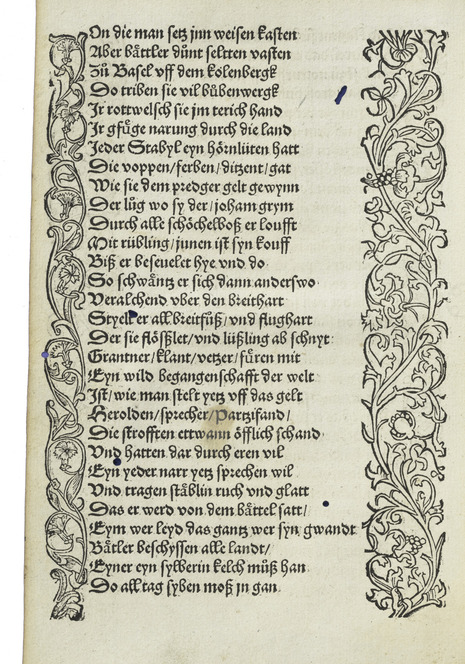 On die man setz jnn weisen kasten
Aber bättler dünt seltten vasten
Zů Basel vff dem kolenbergk
Do triben sie vil bůbenwergk
Jr rottwelsch sie jm terich hand
Jr gfůge narung durch die land
Jeder Stabyl eyn hörnlüten hatt
Die voppen/ferben/ditzent/gat
Wie sie dem predger gelt gewynn
Der lůg wo sy der/joham grym
Durch alle schöchelboß er loufft
Mit rübling/junen ist syn kouff
Biß er beseuelet hye vnd do
So schwäntz er sich dann anderswo
Veralchend vber den breithart
Styelt er all breitfůß/vnd flughart
Der sie flößslet/vnd lüßling ab schnyt
Grantner/klant/vetzer/fůren mit
Eyn wild begangenschafft der welt
Jst/wie man stelt yetz vff das gelt
Herolden/sprecher/Partzifand/
Die strofften ettwann öfflich schand
Vnd hatten dar durch eren vil
Eyn yeder narr yetz sprechen wil
Vnd tragen stäblin ruch vnd glatt
Das er werd von dem bättel satt/
Eym wer leyd das gantz wer syn gwandt
Bätler beschyssen alle landt/
Eyner eyn sylberin kelch můß han
Do all tag syben moß in gan